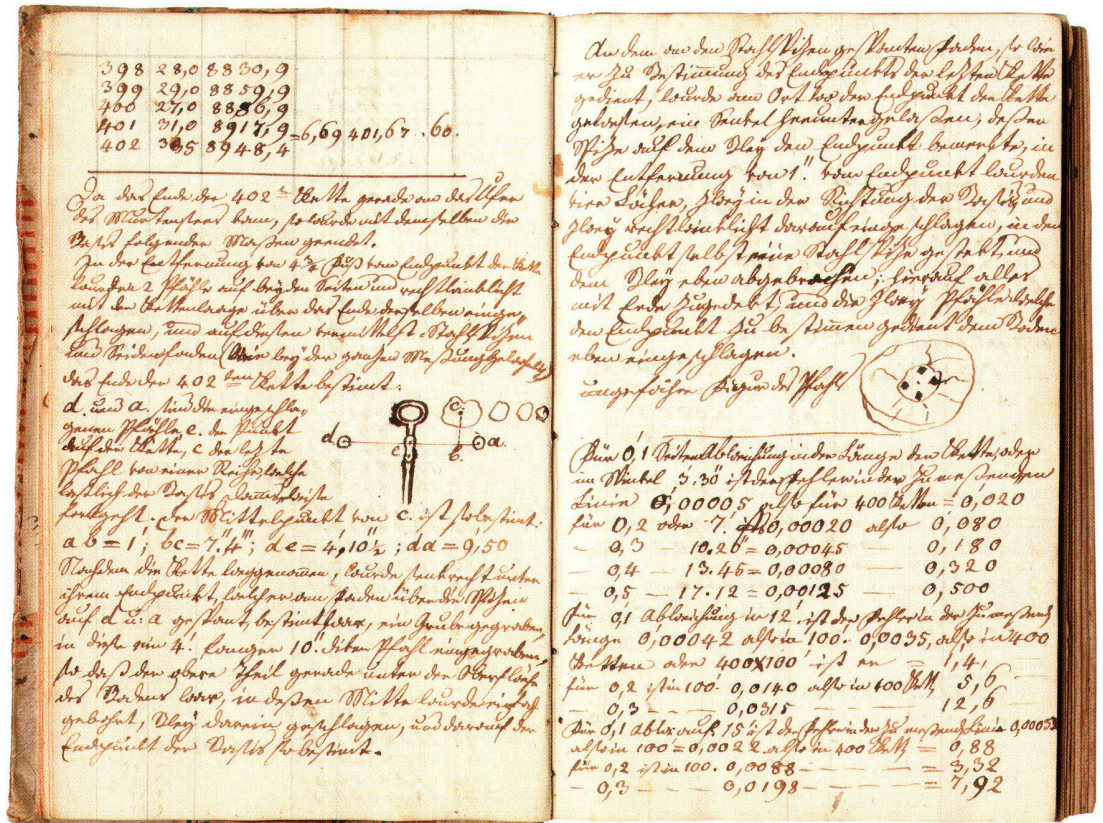 398 28,0 8830,9
399 29,0 8859,9
400 27,0 8886,9
401 31,0 8917,9 =6,69 401,67 . 60.
402 8948,4
Da das Ende der 402 Kette gerade an das Ufer
des Murtensees kam, so wurde mit demselben die
Basis folgender Maßen geendet.
In der Entfernung von 4¾ Fuß vom Endpunkt der Kette
wurden 2 Pfähle auf beyden Seiten und rechtwinklicht
mit der Kettenlaage über das Ende derselben einge-
schlagen, und auf diesen vermittelst Stahlspizen
und Seidenfaden (wie bey der ganzen Meßung
das Ende der 402ten Kette bestimt.
d. und a. sind die eingeschla-
genen Pfähle e. der Punkt
auf der Kette, c der lezte
Pfahl von einer Reihe, welche
der Basis
fortgeht. Der Mittelpunkt von c. ist so bestimt:
ab = 1'; bc = 7."4'"; de = 4,'10"½; da = 9,'50
Nachdem die Kette weggenommen, wurde senkrecht unter
ihrem Endpunkt, welcher am Faden über die Spizen
auf d u: a gespant, bestimt war, ein Grube gegraben,
in diese ein 4.' langer 10." diker Pfahl eingegraben,
so daß der obere Theil gerade unter der Oberfläche
des Bodens war, in deßen Mitte wurde ein Loch
gebohrt, Bley darein geschlagen, und darauf der
Endpunkt der Basis so bestimt.
d
e
c
b.
a.
An dem an den Stahlspizen gespanten Faden, so wie
er zu Bestimmung des Endpunkts der lezten Kette
gedient, wurde am Ort wo der Endpunkt der Kette
gewesen, ein Senkel heruntergelaßen, deßen
Spize auf dem Bley den Endpunkt bemerkte, in
der Entfernung von 1." vom Endpunkt wurden
vier Löcher, zwey in der Richtung der Basis und
zwey rechtwinklicht darauf eingeschlagen, in den
Endpunkt selbst eine Stahlspize gestekt, und
dem Bley eben abgebrochen; hierauf alles
mit Erde zugedekt und die zwey Pfähle welche
den Endpunkt zu bestimmen gedient dem Boden
eben eingeschlagen.
ungefähre Figur des Pfahls
Für 0,1 Seiten Abweichung in der Länge der Kette, oder
im Winkel 3.'30" ist der Fehler in der zu meßenden
Linie 0,00005 also für 400 Ketten = 0,020
für 0,2 oder 7. 0,00020 also 0,080
— 0,3 — 10.20" = 0,00045 — 0,180
— 0,4 — 13.45 = 0,00080 — 0,320
— 0,5 — 17.12 = 0,00125 — 0,500
Für 0,1 Abweichung in 12,' ist der Fehler in der zu meßend
Länge 0,00042 also in 100. 0,0035, also in 400
Ketten oder 400x100' ist er = 1,4,
für 0,2 ist in 100.' 0,0140 also in 400 Kett 5,6
— 0,3 — 0,0315 — 12,6
Für 0,1 Abw: auf 15' ist der Fehler in der zu meßend Linie
also in 100 = 0,0022 also in 400 Kett = 0,88
für 0,2 ist in 100. 0,0088 — = 3,32
— 0,3 — 0,0198 — = 7,92